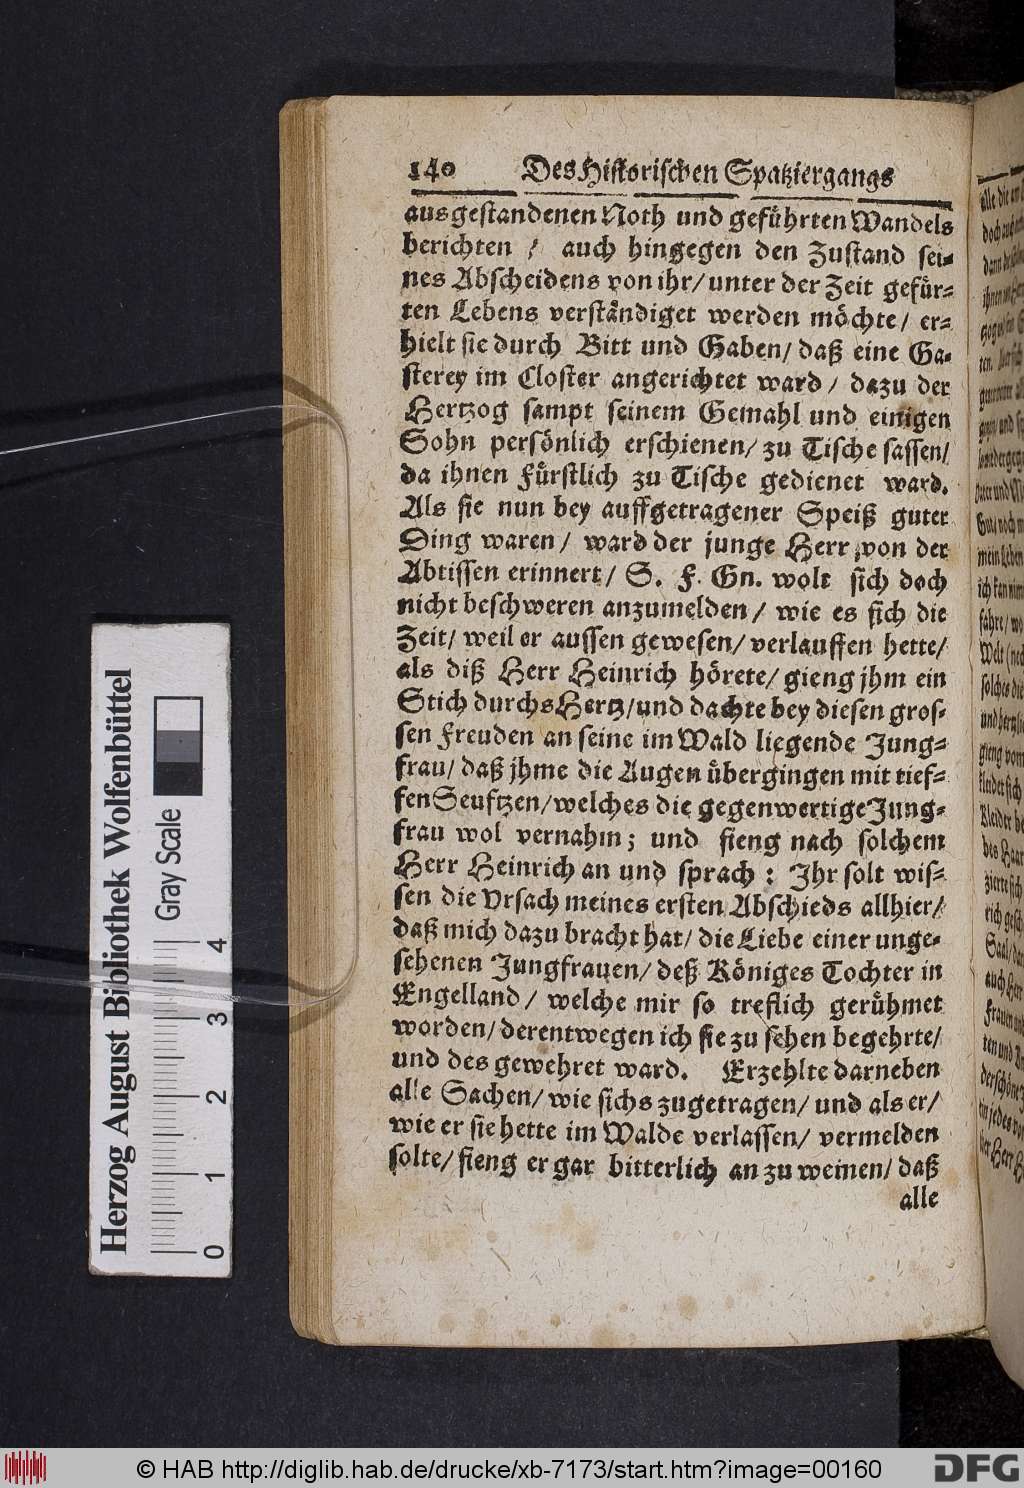 140 Des Historischen Spatziergangs
ausgestandenen Noth und gefuͤhrten Wandels
berichten / auch hingegen den Zustand sei-
nes Abscheidens von ihr/ unter der Zeit gefuͤr-
ten Lebens verstaͤndiget werden moͤchte/ er-
hielt sie durch Bitt und Gaben/ daß eine Ga-
sterey im Closter angerichtet ward/ dazu der
Hertzog sampt seinem Gemahl und einigen
Sohn persoͤnlich erschienen/ zu Tische sassen/
da ihnen Fuͤrstlich zu Tische gedienet ward.
Als sie nun bey auffgetragener Speiß guter
Ding waren/ ward der junge Herr von der
Abtissen erinnert/ S. F. Gn. wolt sich doch
nicht beschweren anzumelden/ wie es sich die
Zeit/ weil er aussen gewesen/ verlauffen hette/
als diß Herr Heinrich hoͤrete/ gieng jhm ein
Stich durchs Hertz/ und dachte bey diesen gros-
sen Freuden an seine im Wald liegende Jung-
frau/ daß jhme die Augen uͤbergingen mit tief-
fen Seuftzen/ welches die gegenwertige Jung-
frau wol vernahm; und fieng nach solchem
Herr Heinrich an und sprach: Ihr solt wis-
sen die Vrsach meines ersten Abschieds allhier/
daß mich dazu bracht hat/ die Liebe einer unge-
sehenen Jungfrauen/ deß Koͤniges Tochter in
Engelland/ welche mir so treflich geruͤhmet
worden/ derentwegen ich sie zu sehen begehrte/
und des gewehret ward. Erzehlte darneben
alle Sachen/ wie sichs zugetragen/ und als er/
wie er sie hette im Walde verlassen/ vermelden
solte/ fieng er gar bitterlich an zu weinen/ daß
alle
Herzog August Bibliothek Wolfenbüttel
Gray Scale
0 1 2 3 4
© HAB http://diglib.hab.de/drucke/xb-7173/start.htm?image=00160
DFG